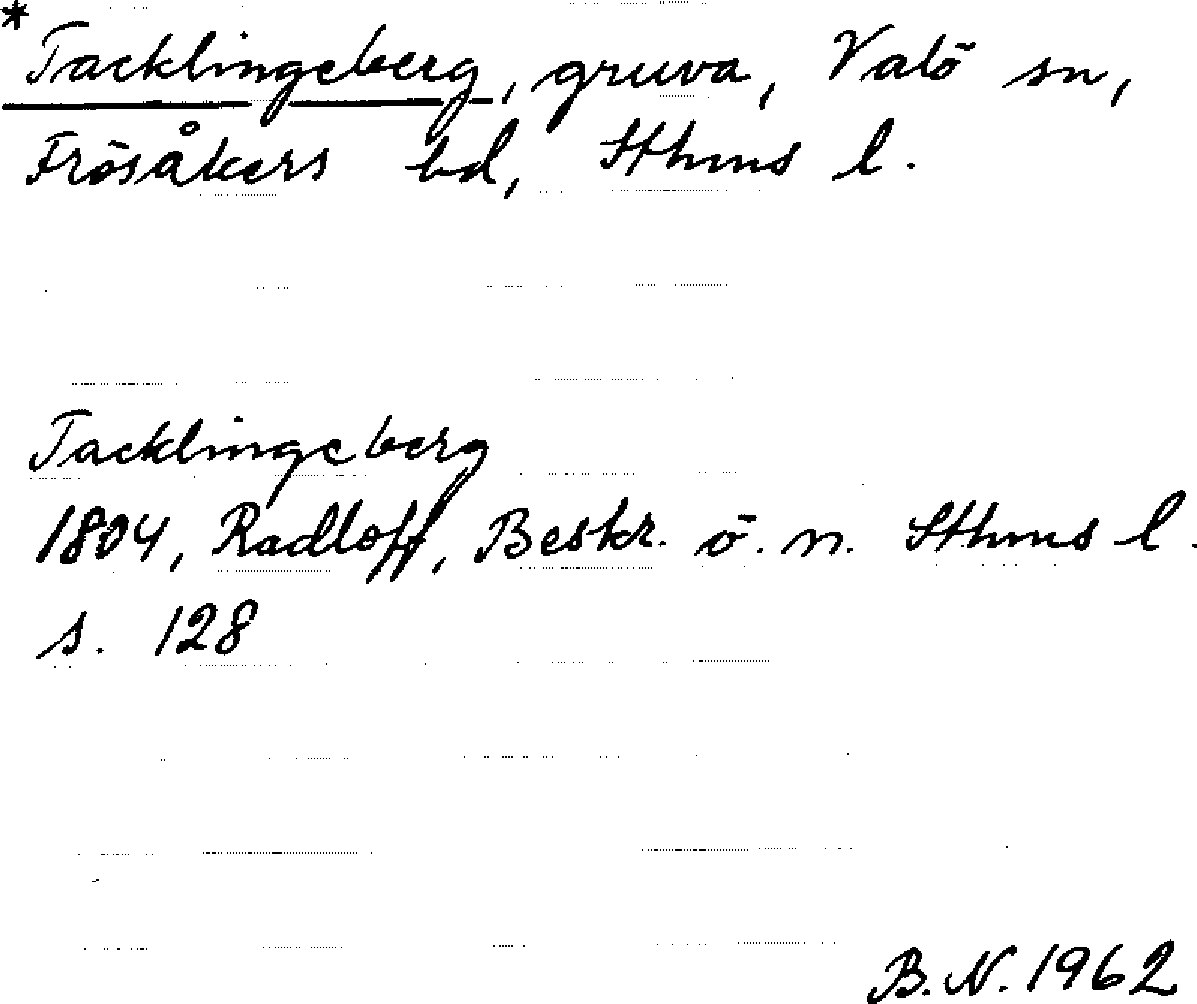 *Tacklingeberg, gruva, Valö sn,
Frösåkers hd, Sthms l.
Tacklingeberg
1804, Radloff, Beskr. ö. n. Sthms l.
s. 128
B.N. 1962